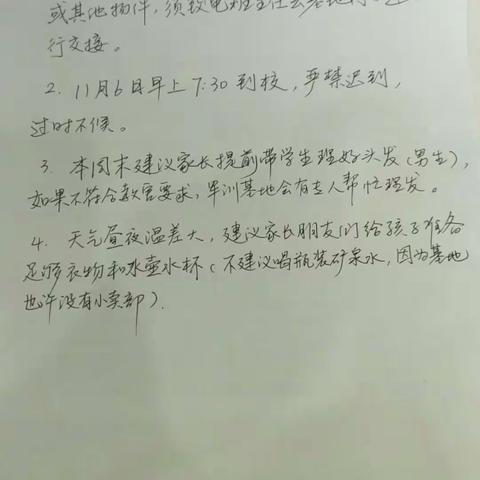 或其他物件，须致电班主任去基地门口进
行交接。
2. 11月6日早上7:30到校，严禁迟到，
过时不候。
3. 本周末建议家长提前带学生理好头发（男生），
如果不符合教官要求，军训基地会有专人帮忙理发。
4. 天气昼夜温差大，建议家长朋友们给孩子准备
足够衣物和水壶水杯（不建议喝瓶装矿泉水，因为基地
也许没有小卖部）.